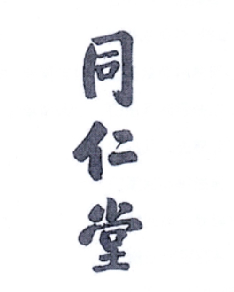 同仁堂